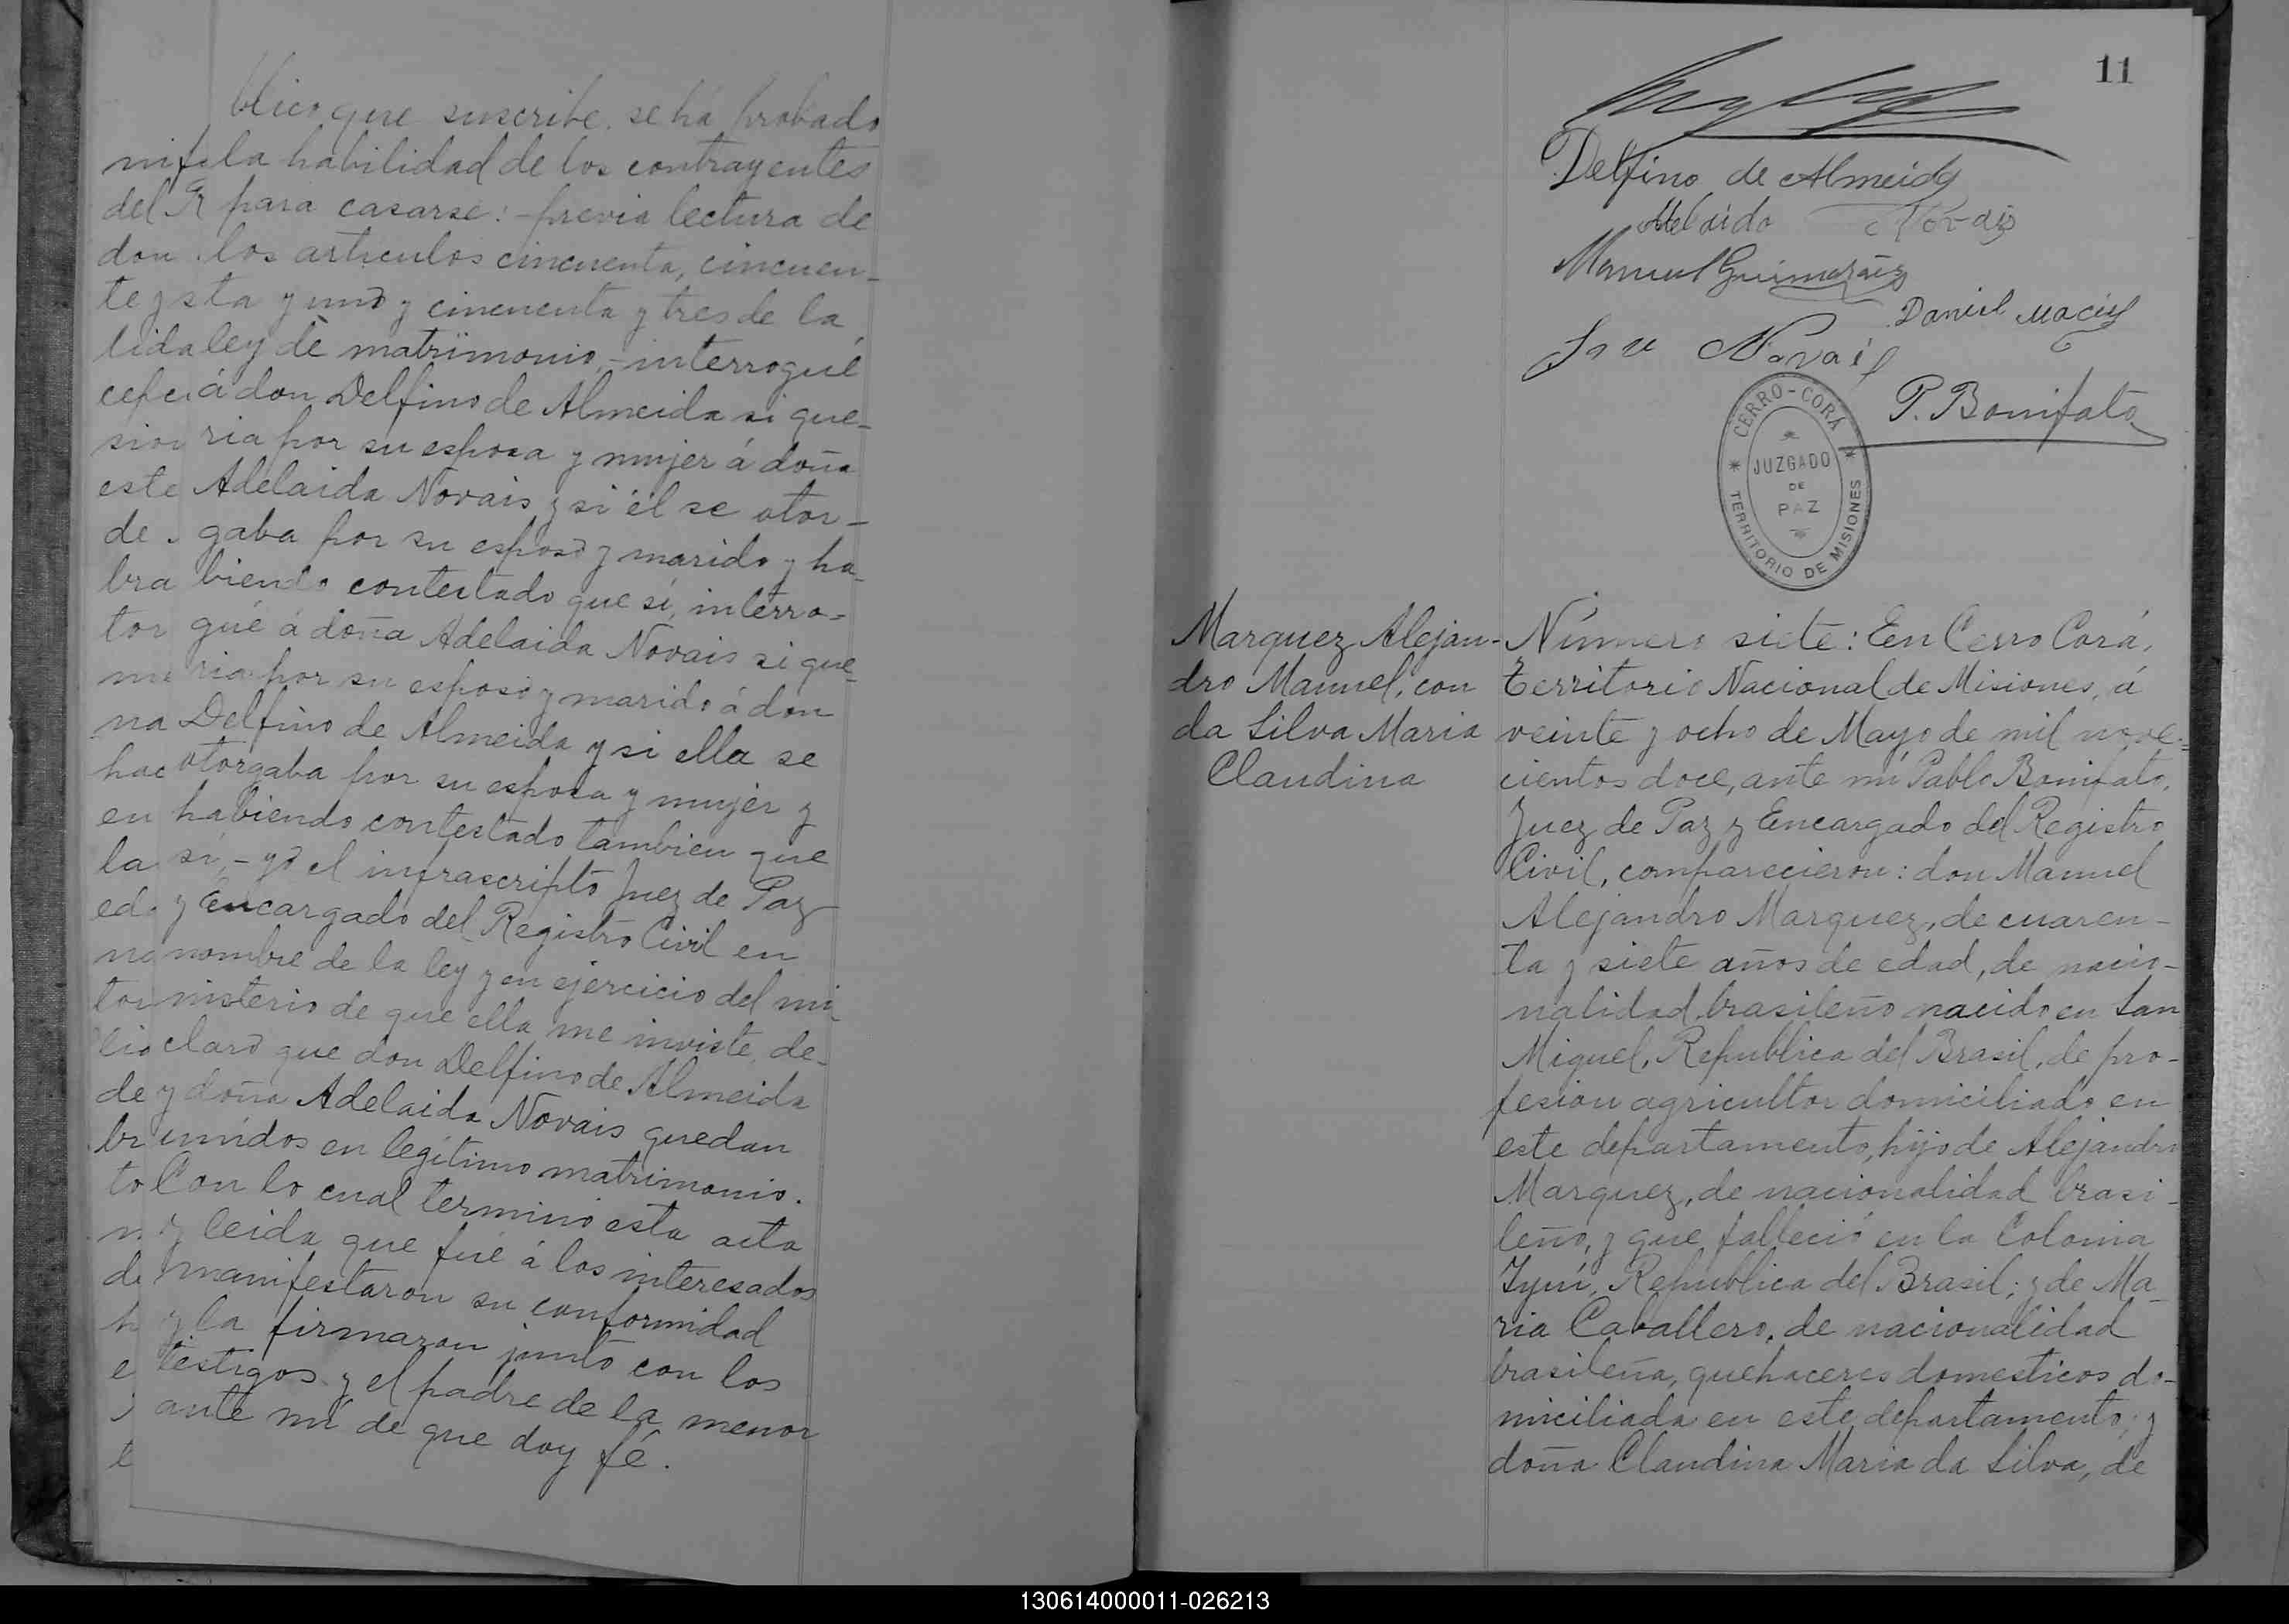 blico que suscribe se há probado
la habilidad de los contrayentes
para casarse: - previa lectura de
los articulos cincuenta, cincuen-
ta y uno y cincuenta y tres de la
ley de matrimonio, - interrogué
á don Delfino de Almeida si que-
ria por su esposa y mujer á doña
Adelaida Novais y si él se otor-
gaba por su esposo y marido y ha-
biendo contestado que sí, interro-
gué á doña Adelaida Novais si que-
ria por su esposo y marido á don
Delfino de Almeida y si ella se
otorgaba por su esposa y mujer y
habiendo contestado tambien que
sí, - yo el infrascripto Juez de Paz
y Encargado del Registro Civil en
nombre de la ley y en ejercicio del mi-
nisterio de que ella me inviste, de-
claro que don Delfino de Almeida
y doña Adelaida Novais quedan
unidos en legítimo matrimonio.
Con lo cual terminó esta acta
y leida que fué á los interesados
manifestaron su conformidad
y la firmaron junto con los
testigos y el padre de la menor
ante mí de que doy fé.
11
Delfino de Almeida
Adelaida Novais
Manuel Guimarães
Daniel Maciel
Novais
P. Bonifato
CERRO-CORÁ
JUZGADO
DE
PAZ
TERRITORIO DE MISIONES
Marquez Alejan-
dro Manuel, con
da Silva Maria
Claudina
Número siete: En Cerro Corá,
Territorio Nacional de Misiones, á
veinte y ocho de Mayo de mil nove-
cientos doce, ante mí Pablo Bonifato,
Juez de Paz y Encargado del Registro
Civil, comparecieron: don Manuel
Alejandro Marquez, de cuaren-
ta y siete años de edad, de nacio-
nalidad brasileño nacido en San
Miguel, Republica del Brasil, de pro-
fesion agricultor domiciliado en
este departamento, hijo de Alejandro
Marquez, de nacionalidad brasi-
leño, y que falleció en la Colonia
Iyuí, Republica del Brasil; y de Ma-
ria Caballero, de nacionalidad
brasileña, quehaceres domesticos do-
miciliada en este departamento; y
doña Claudina Maria da Silva, de
130614000011-026213